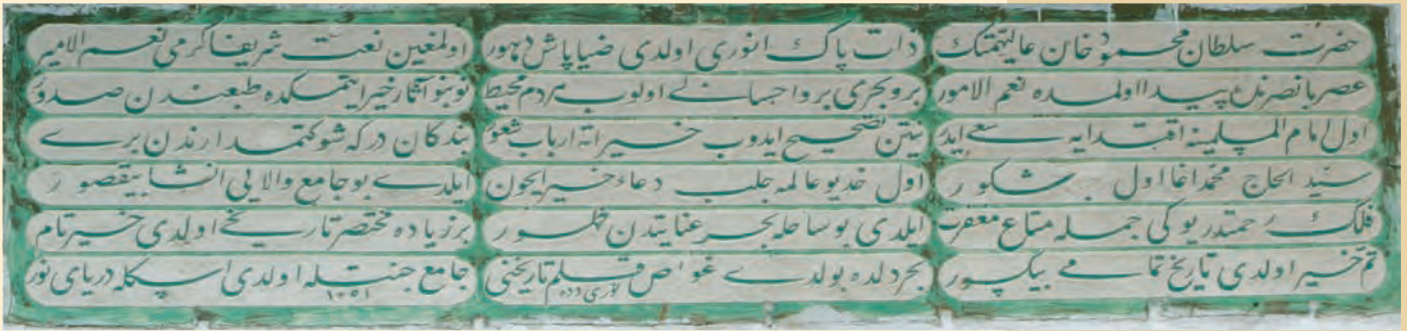 حضرت سلطان محمود خان عالیهمتك
ذات پاك انوری اولدی ضیا پاش دهور
اولمغین نعت شریف اكرمی نعم الامیر
عصر بانصرنده پیدا اولمده نعم الامور
بر و بحری بر و احسانی اولوب هردم محیط
نو بنو آثار خیر ایتمكده طبعندن صدور
اول امام المسلمینه اقتدایه سعی ایدر
نیتن تصحیح ایدوب خیراته ارباب شعور
بندكان دركه شوكتمدارندن بری
سید الحاج محمد اغا اول مشكور
اول خدیو عالمه جلب دعاء خیر ایچون
ایلدی بو جامع والایی انشا بیقصور
فلك رحمتدر بو كی جمله متاع مغفرت
ایلدی بو ساحله بحر عنایتدن ظهور
برزیاده مختصر تاریخی اولدی خیر تام
تم خیر اولدی تاریخ تمامی بیكسور
بحر دلده بولدی غواص قلم تاریخنی نوری دده
جامع جنتله اولدی اسكله دریای نور ١٢٥١